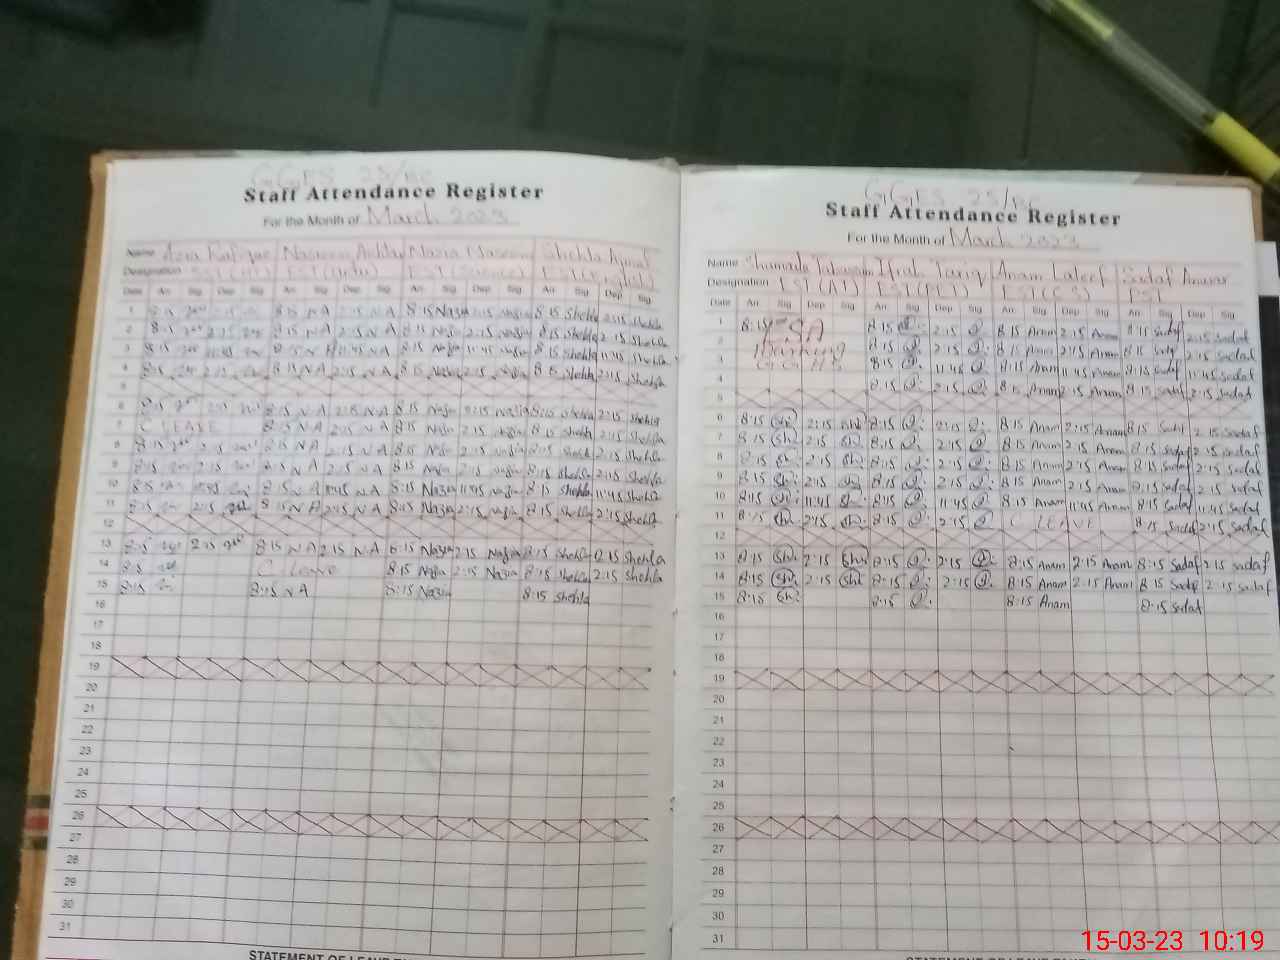 GGES 25/
Staff Attendance Register
For the Month of March 2023
Name Azra Rafique Naseem Akhtar Nazia Naseem Shehla
Designation EST (Urdu) EST (Science) EST (English)
Date Arr Sig Dep Sig Arr Sig Dep Sig Arr Sig Dep Sig Arr Sig Dep Sig
1 8:15 8:15 NA 2:15 NA 8:15 Nazia 2:15 Nazia 8:15 Shehla 2:15 Shehla
2 8:15 2:15 8:15 NA 2:15 NA 8:15 Nazia 2:15 Nazia 8:15 Shehla 2:15 Shehla
3 8:15 11:45 8:15 NA 11:45 NA 8:15 Nazia 11:45 Nazia 8:15 Shehla 11:45 Shehla
4 8:15 2:15 8:15 NA 2:15 NA 8:15 Nazia 2:15 Nazia 8:15 Shehla 2:15 Shehla
5
6 8:15 2:15 8:15 NA 2:15 NA 8:15 Nazia 2:15 Nazia 8:15 Shehla 2:15 Shehla
7 C LEASE 8:15 NA 2:15 NA 8:15 Nazia 2:15 Nazia 8:15 Shehla 2:15 Shehla
8 8:15 2:15 8:15 NA 2:15 NA 8:15 Nazia 2:15 Nazia 8:15 Shehla 2:15 Shehla
9 8:15 2:15 8:15 NA 2:15 NA 8:15 Nazia 2:15 Nazia 8:15 Shehla 2:15 Shehla
10 8:15 11:45 8:15 NA 11:45 NA 8:15 Nazia 11:45 Nazia 8:15 Shehla 11:45 Shehla
11 8:15 2:15 8:15 NA 2:15 NA 8:15 Nazia 2:15 Nazia 8:15 Shehla 2:15 Shehla
12
13 8:15 2:15 8:15 NA 2:15 NA 8:15 Nazia 2:15 Nazia 8:15 Shehla 2:15 Shehla
14 8:15 C Leave 8:15 Nazia 2:15 Nazia 8:15 Shehla 2:15 Shehla
15 8:15 8:15 NA 8:15 Nazia 8:15 Shehla
16
17
18
19
20
21
22
23
24
25
26
27
28
29
30
31
GGES 25/
Staff Attendance Register
For the Month of March 2023
Name Shamada Tabasum Ifrah Tariq Anam Lateef Sadaf
Designation EST (AT) EST (PET) EST (C.S) EST
Date Arr Sig Dep Sig Arr Sig Dep Sig Arr Sig Dep Sig Arr Sig Dep Sig
1 8:15 8:15 2:15 8:15 Anam 2:15 Anam 8:15 Sadaf 2:15 Sadaf
2 8:15 2:15 8:15 Anam 2:15 Anam 8:15 Sadaf 2:15 Sadaf
3 8:15 11:45 8:15 Anam 11:45 Anam 8:15 Sadaf 11:45 Sadaf
4 8:15 2:15 8:15 Anam 2:15 Anam 8:15 Sadaf 2:15 Sadaf
5
6 8:15 Sh 2:15 Sh 8:15 2:15 8:15 Anam 2:15 Anam 8:15 Sadaf 2:15 Sadaf
7 8:15 Sh 2:15 Sh 8:15 2:15 8:15 Anam 2:15 Anam 8:15 Sadaf 2:15 Sadaf
8 8:15 Sh 2:15 Sh 8:15 2:15 8:15 Anam 2:15 Anam 8:15 Sadaf 2:15 Sadaf
9 8:15 Sh 2:15 Sh 8:15 2:15 8:15 Anam 2:15 Anam 8:15 Sadaf 2:15 Sadaf
10 8:15 Sh 11:45 Sh 8:15 11:45 8:15 Anam 11:45 Anam 8:15 Sadaf 11:45 Sadaf
11 8:15 Sh 2:15 Sh 8:15 2:15 C LEAVE 8:15 Sadaf 2:15 Sadaf
12
13 8:15 Sh 2:15 Sh 8:15 2:15 8:15 Anam 2:15 Anam 8:15 Sadaf 2:15 Sadaf
14 8:15 Sh 2:15 Sh 8:15 2:15 8:15 Anam 2:15 Anam 8:15 Sadaf 2:15 Sadaf
15 8:15 Sh 8:15 8:15 Anam 8:15 Sadaf
16
17
18
19
20
21
22
23
24
25
26
27
28
29
30
31
STATEMENT OF LEAVE
STATEMENT OF LEAVE
15-03-23 10:19